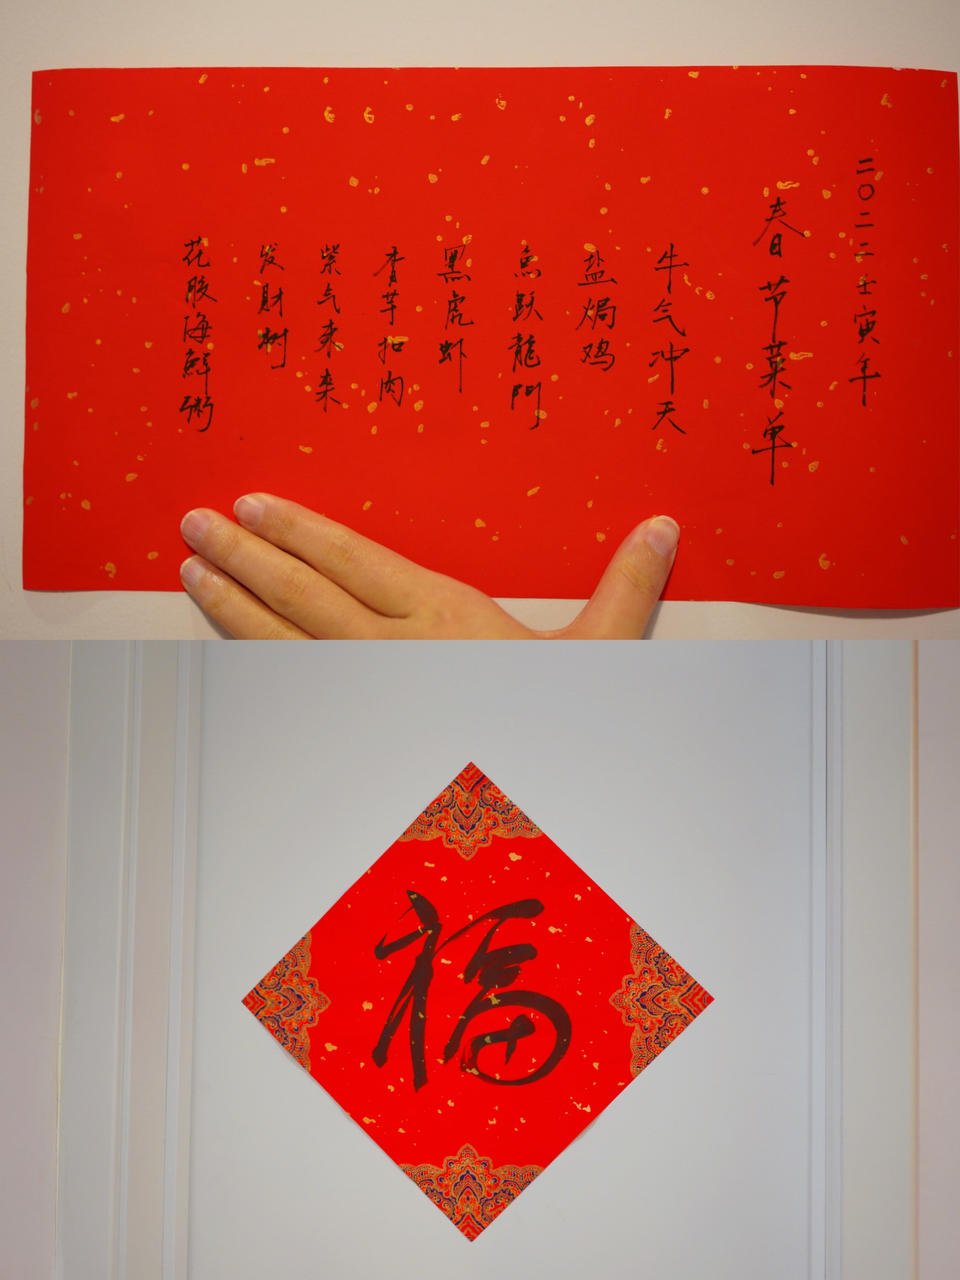 二〇二二壬寅年
春节菜单
牛气冲天
盐焗鸡
鱼跃龍門
黑虎虾
香芋扣肉
紫气东来
发财树
花胶海鲜粥
福